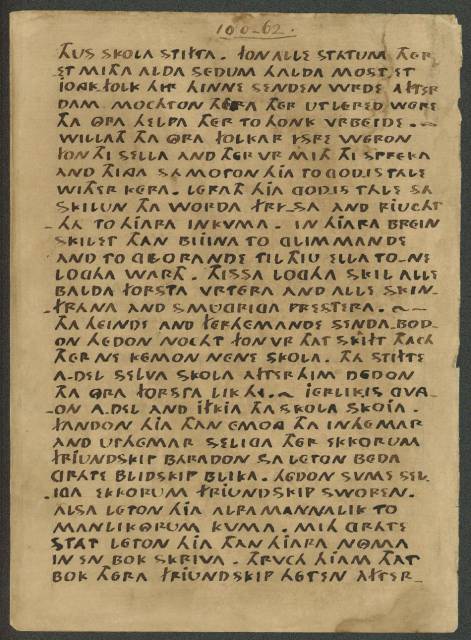 100-62.
THUS SKOLA STIFTA. FON ALLE STATUM THER
ET MITHA ALDA SEDUM HALDA MOST. ET
JOGK.FOLK HIR HINNE SENDEN WRDE AFTER
DAM MOCHTON THERA THER UTLERED WERE
THA ORA HELPA THER TO HONK VRBEIDE. ~
WILLATH THA ORA FOLKAR YSRE WERON
FON THI SELLA AND THER VR MITH THI SPREKA
AND THIGA SA MOTON HIA TO GODIS TALE
WITHER KERA. LERATH HIA GODIS TALE SA
SKILUN THA WORDA FRY-SA AND RIUCHT
-HA TO HIARA INKVMA. IN HIARA BREIN
SKILET THAN BIJINA TO GLIMMANDE
AND TO GLORANDE TIL THIU ELLA TO-NE
LOGHA WARTH. THISSA LOGHA SKIL ALLE
BALDA FORSTA VRTERA AND ALLE SKIN-
-FRANA AND SMUGRIGA PRESTERA. ~
THA HEINDE AND FERHEMANDE SENDA.BOD-
ON HEDON NOCHT FON VR THAT SKRIFT THACH
THER NE KEMON NENE SKOLA. THA STIFTE
A.DEL SELVA SKOLA AFTER HIM DEDON
THA ORA FORSTA LIK HI. ~ IERLIKIS GVA-
-ON A.DEL AND IFKIA THA SKOLA SKOJA.
FANDON HIA THAN EMOG THA INHEMAR
AND UTHEMAR SELIGA THER EKKORUM
FRIUNDSKIP BARADON SA LETON BEDA
GRATE BLIDSKIP BLIKA. HEDON SUME SEL-
-IGA EKKORUM FRIUNDSKIP SWOREN.
ALSA LETON HIA ALRA MANNALIK TO
MANLIKORUM KVMA. MITH GRATE
STAT LETON HIA THAN HIARA NOMA
IN EN BOK SKRIVA. THRVCH HIAM THAT
BOK THERA FRIUNDSKIP HETEN AFTER_